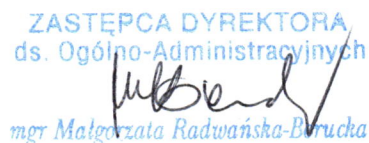 ZASTĘPCA DYREKTORA
ds. Ogólno-Administracyjnych
mgr Małgorzata Radwańska-Borucka